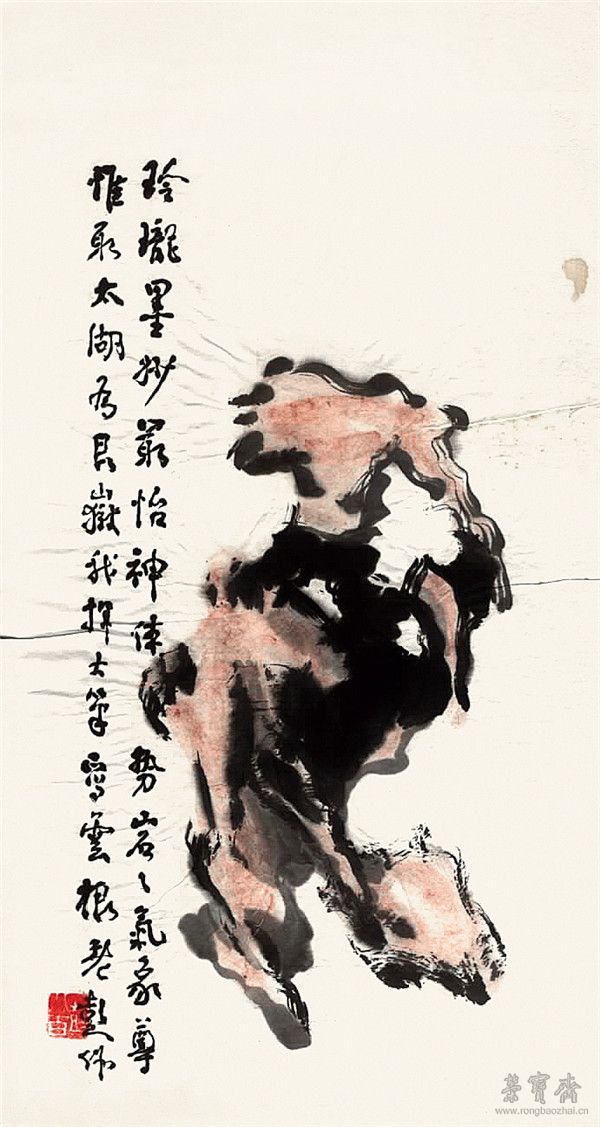 玲瓏墨妙最怡神体势岩々氣象尊
惟取太湖為 嶽我揮大筆寫雲根老
榮寶齋
www.rongbaozhai.cn